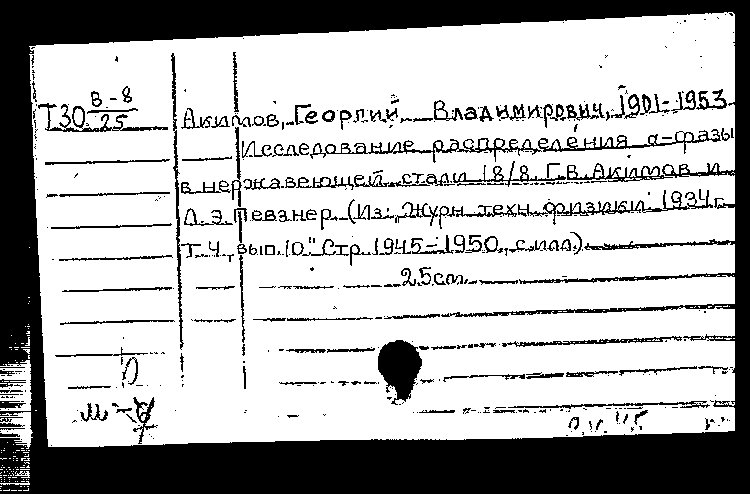 Т30 В-8/25
Акимов, Георгий Владимирович, 1901-1953
Исследование распределения α-фазы
в нержавеющей стали 18/8. Г.В. Акимов и
Л.Э. Певзнер. (Из: „Журн. техн. физики. 1934 г.
Т. 4, вып. 10." Стр. 1945-1950, с илл.)
25 см.